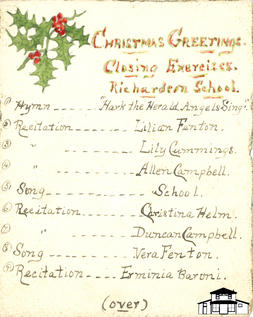 Christmas Greetings.
Closing Exercises.
Richardson School.
① Hymn ----- "Hark the Herald Angels Sing".
② Recitation ----- Lilian Fenton.
③ " ----- Lily Cummings.
④ " ---- Allen Campbell.
⑤ Song ----- School.
⑥ Recitation ---- Christina Helm.
⑦ " ---- Duncan Campbell.
⑧ Song ----- Vera Fenton.
⑨ Recitation ---- Erminia Baroni.
(over)